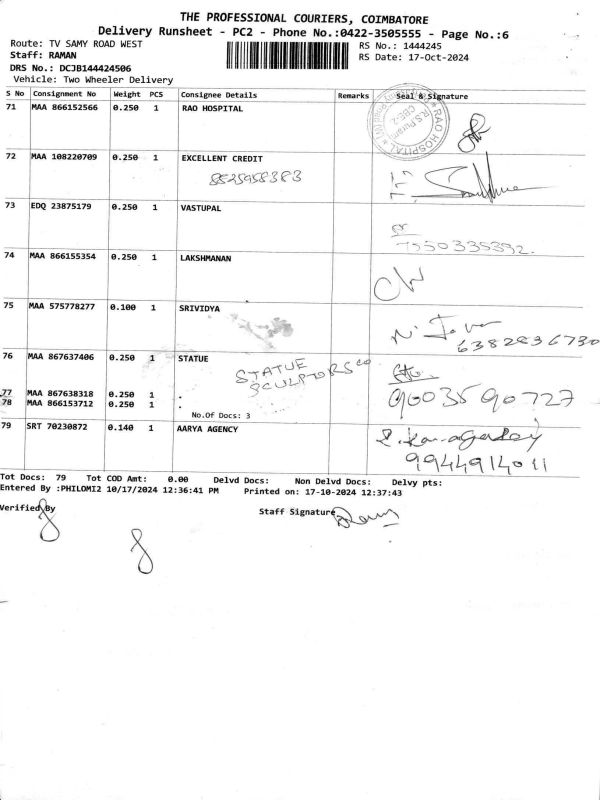 THE PROFESSIONAL COURIERS, COIMBATORE
Delivery Runsheet - PC2 - Phone No.:0422-3505555 - Page No.:6
Route: TV SAMY ROAD WEST
RS No.: 1444245
Staff: RAMAN
RS Date: 17-Oct-2024
DRS No.: DCJB144424506
Vehicle: Two Wheeler Delivery
S No Consignment No Weight PCS Consignee Details Remarks Seal & Signature
71 MAA 866152566 0.250 1 RAO HOSPITAL
RAO HOSPITAL
R.S.Puram
CBE-2
72 MAA 108220709 0.250 1 EXCELLENT CREDIT
8525958383
73 EDQ 23875179 0.250 1 VASTUPAL
7550335392.
74 MAA 866155354 0.250 1 LAKSHMANAN
75 MAA 575778277 0.100 1 SRIVIDYA
6382836730
76 MAA 867637406 0.250 1 STATUE
STATUE
SCULPTORS co
77 MAA 867638318 0.250 1 .
9003590727
78 MAA 866153712 0.250 1 .
No.Of Docs: 3
79 SRT 70230872 0.140 1 AARYA AGENCY
9944914011
Tot Docs: 79 Tot COD Amt: 0.00 Delvd Docs: Non Delvd Docs: Delvy pts:
Entered By :PHILOMI2 10/17/2024 12:36:41 PM Printed on: 17-10-2024 12:37:43
Verified By
Staff Signature